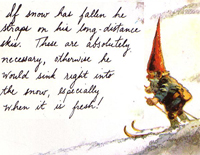 If snow has fallen he
straps on his long-distance
skis. These are absolutely
necessary, otherwise he
would sink right into
the snow, especially
when it is fresh!